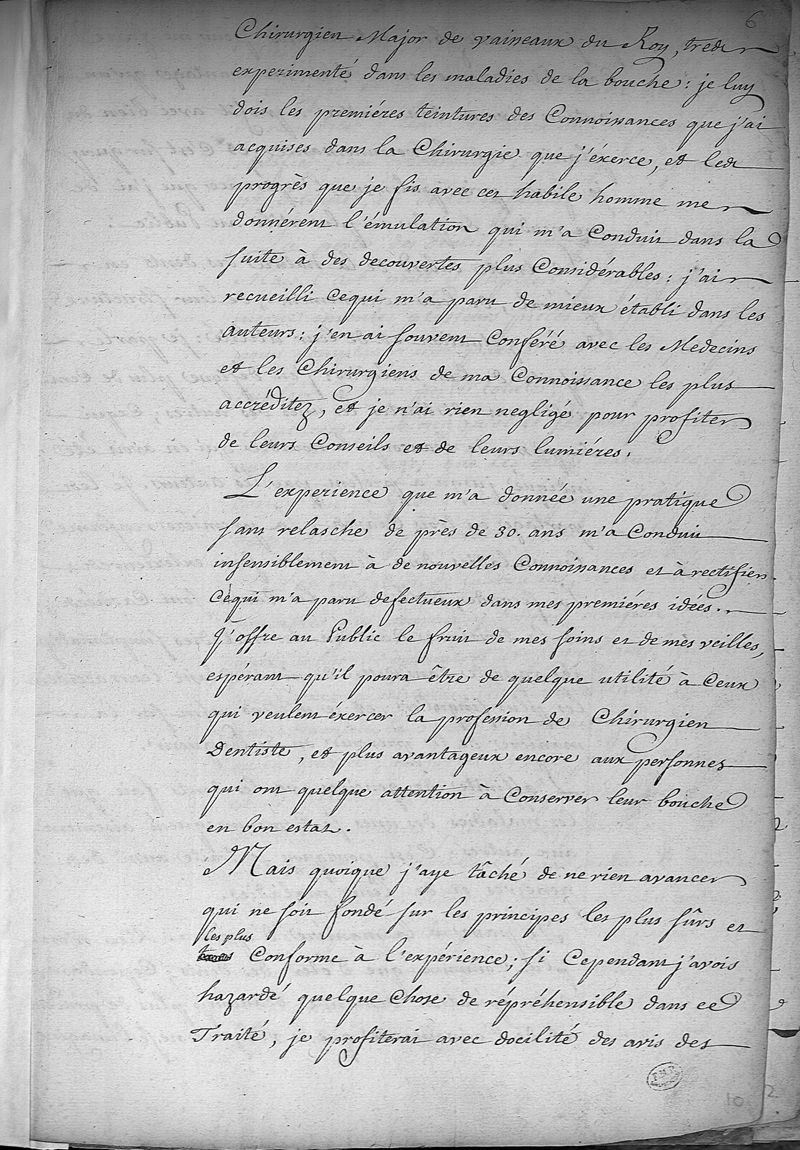 6
Chirurgien Major de vaisseaux du Roy, tres
experimenté dans les maladies de la bouche : je luy
dois les premiéres teintures des Connoissances que j'ai
acquises dans la Chirurgie que j'éxerce, et les
progrès que je fis avec cet habile homme me
donnérent l'émulation qui m'a Conduit dans la
suite à des decouvertes plus Considérables : j'ai
recueilli cequi m'a paru de mieux établi dans les
auteurs : j'en ai souvent Conféré avec les Medecins
et les Chirurgiens de ma Connoissance les plus
accréditez, et je n'ai rien negligé pour profiter
de leurs Conseils et de leurs lumiéres.
L'experience que m'a donnée une pratique
sans relasche de près de 30. ans m'a Conduit
insensiblement à de nouvelles Connoissances et à rectifier
cequi m'a paru defectueux dans mes premiéres idées.
J'offre au Public le fruit de mes soins et de mes veilles,
espérant qu'il poura être de quelque utilité à Ceux
qui veulent éxercer la profession de Chirurgien
Dentiste, et plus avantageux encore aux personnes
qui ont quelque attention à Conserver leur bouche
en bon estat.
Mais quoique j'aye tâché de ne rien avancer
qui ne soit fondé sur les principes les plus sûrs et
les plus
Conforme à l'expérience ; si Cependant j'avois
hazardé quelque Chose de répréhensible dans ce
Traité, je profiterai avec docilité des avis des
10
2